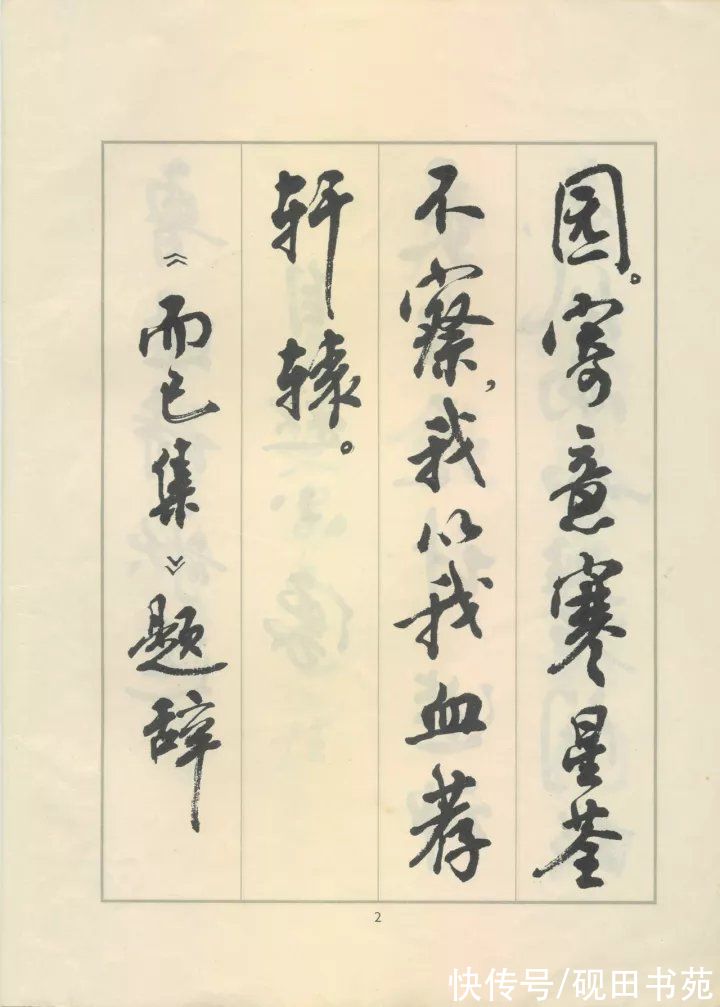 园。寄意寒星荃
不察,我以我血荐
轩辕。
《而已集》题辞
2
快传号/砚田书苑